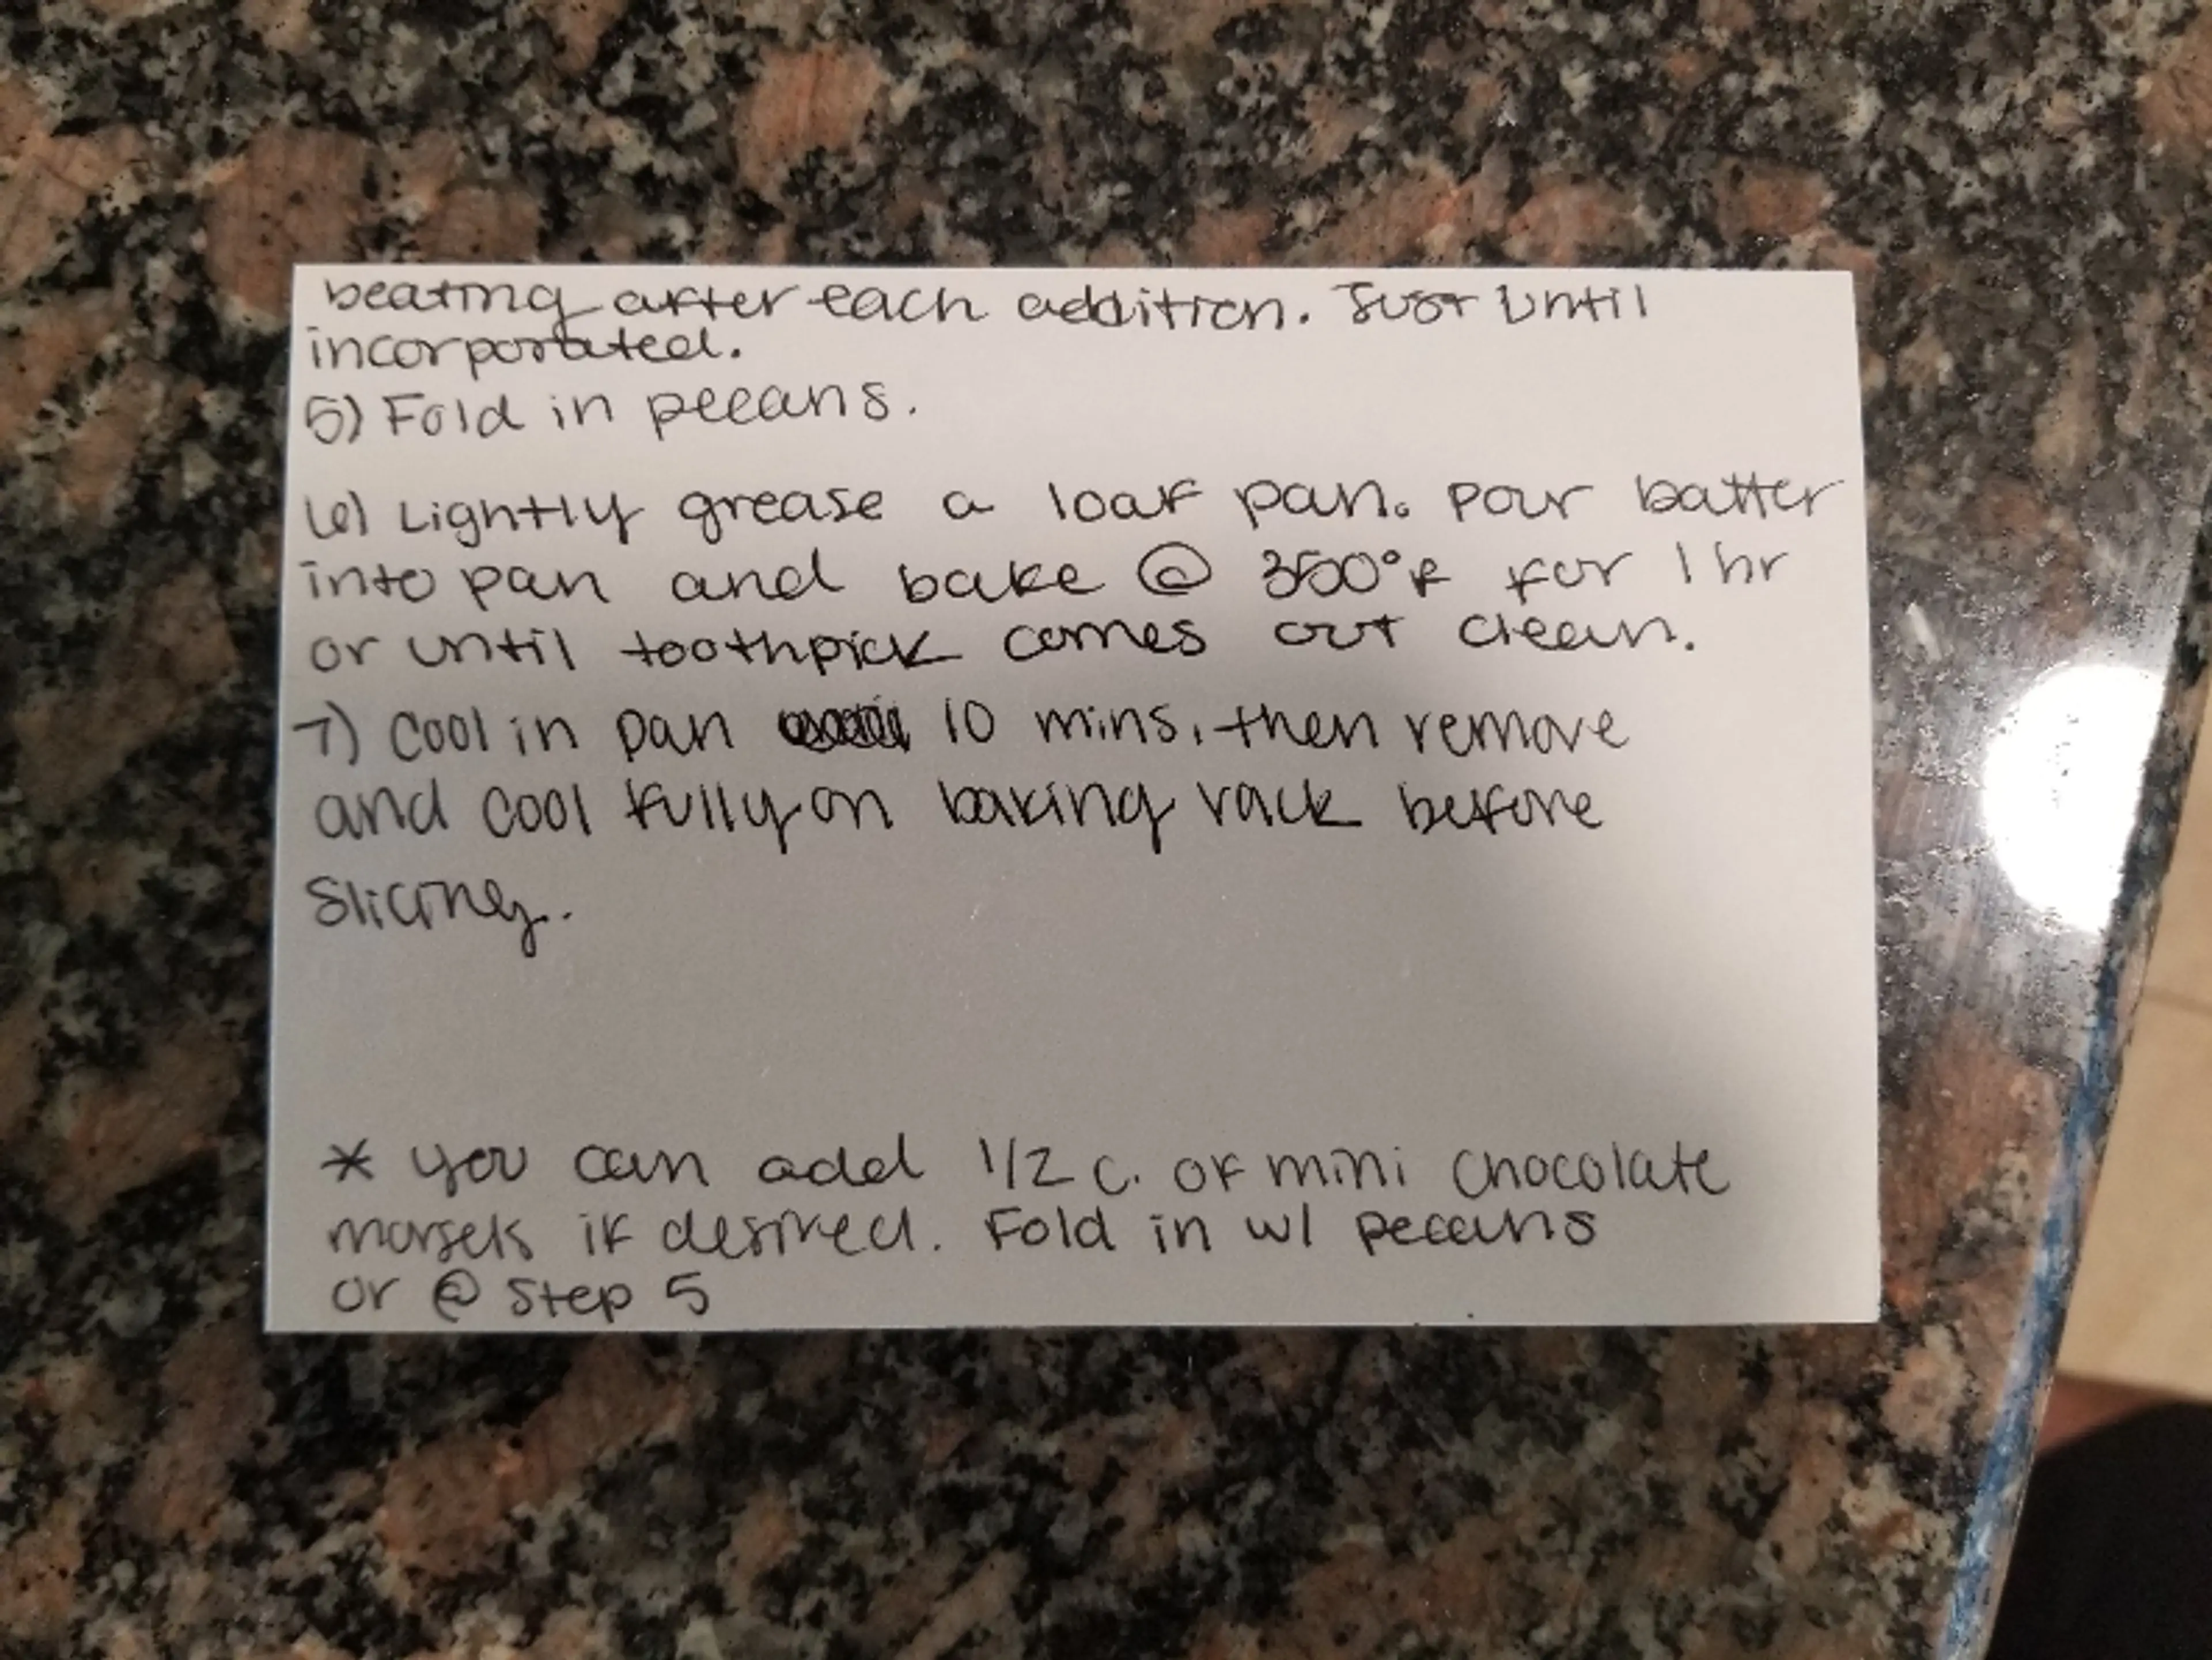 beating after each addition. Just until
incorporated.
5) Fold in pecans.
6) Lightly grease a loaf pan. Pour batter
into pan and bake @ 350°F for 1 hr
or until toothpick comes out clean.
7) Cool in pan 10 mins, then remove
and cool fully on baking rack before
slicing.
* you can add 1/2 c. of mini chocolate
morsels if desired. Fold in w/ pecans
or @ step 5